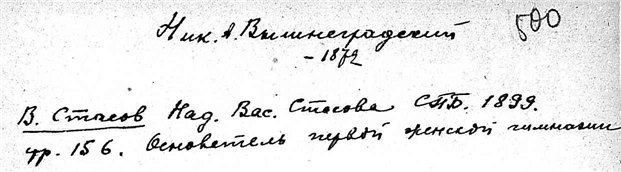 Ник. А. Вышнеградский 500
– 1872
В. Стасов Над. Вас. Стасова СПБ. 1899.
стр. 156. Основатель первой женской гимназии